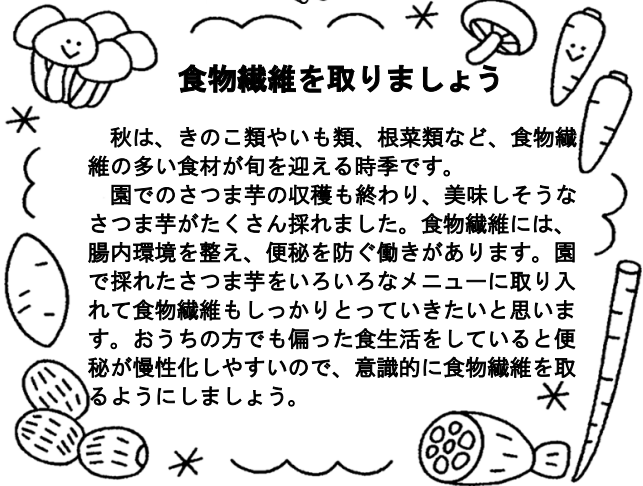 食物繊維を取りましょう
　秋は、きのこ類やいも類、根菜類など、食物繊
維の多い食材が旬を迎える時季です。
　園でのさつま芋の収穫も終わり、美味しそうな
さつま芋がたくさん採れました。食物繊維には、
腸内環境を整え、便秘を防ぐ働きがあります。園
で採れたさつま芋をいろいろなメニューに取り入
れて食物繊維もしっかりとっていきたいと思いま
す。おうちの方でも偏った食生活をしていると便
秘が慢性化しやすいので、意識的に食物繊維を取
るようにしましょう。